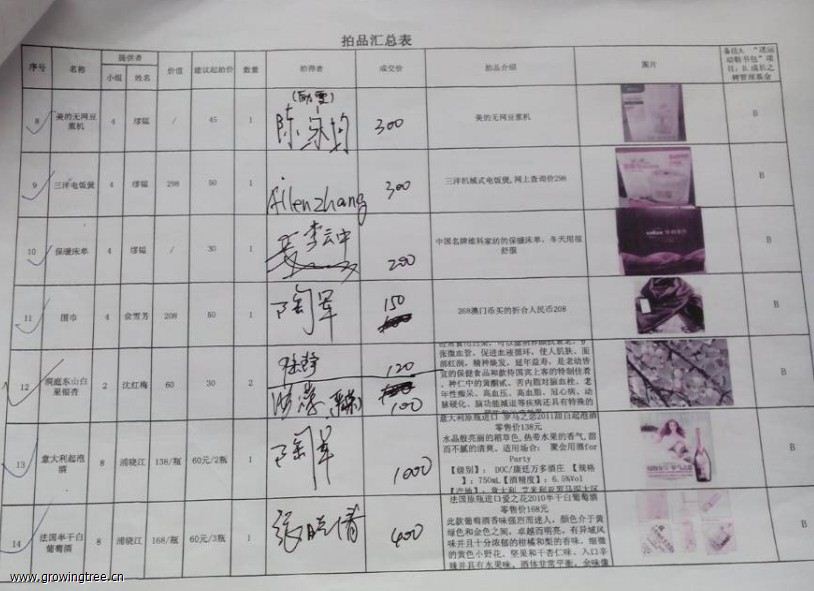 拍品汇总表
序号 名称 提供者 价值 建议起拍价 数量 拍得者 成交价 拍品介绍 图片
小组 姓名
8 美的无网豆浆机 4 / 45 1 300 美的无网豆浆机 B
9 三洋电饭煲 4 298 50 1 Allenzhang 300 三洋机械式电饭煲,网上查询价298 B
10 保暖床单 4 / 30 1 李云中 200 中国名牌维科家纺的保暖床单,冬天用很舒服 B
11 围巾 4 俞雪芳 208 50 1 陶军 150 268澳门币买的折合人民币208 B
12 洞庭东山白果银杏 2 沈红梅 60 30 2 120
100
张微血管,促进血液循环,使人肌肤、面
部红润,精神焕发,延年益寿,是老幼皆
宜的保健食品和款待国宾上客的特制佳肴
年性痴呆、高血压、高血脂、冠心病、动
脉硬化、脑功能减退等疾病还具有特殊的
B
13 意大利起泡酒 8 浦晓江 138/瓶 60元/2瓶 1 陶军 1000
意大利原瓶进口 罗马之恋2011甜白起泡酒
零售价138元
水晶般亮丽的稻草色,热带水果的香气,甜
而不腻的清爽。适用场合: 聚会用酒for
Party
【级别】: DOC/康廷万多酒庄 【规格
】: 750mL【酒精度】: 6.5%Vol
B
14 法国半干白葡萄酒 8 浦晓江 168/瓶 60元/3瓶 1 张晓倩 400
法国原瓶进口爱之花2010半干白葡萄酒
零售价168元
此款葡萄酒香味强烈而迷人,颜色介于黄
绿色和金色之间,卓越而明亮。有异域风
味并且十分浓郁的柑橘和梨的香味,细微
的黄色小野花、坚果和干杏仁味。入口辛
辣并且有水果味,酒体非常平衡,余味像
B
www.growingtree.cn